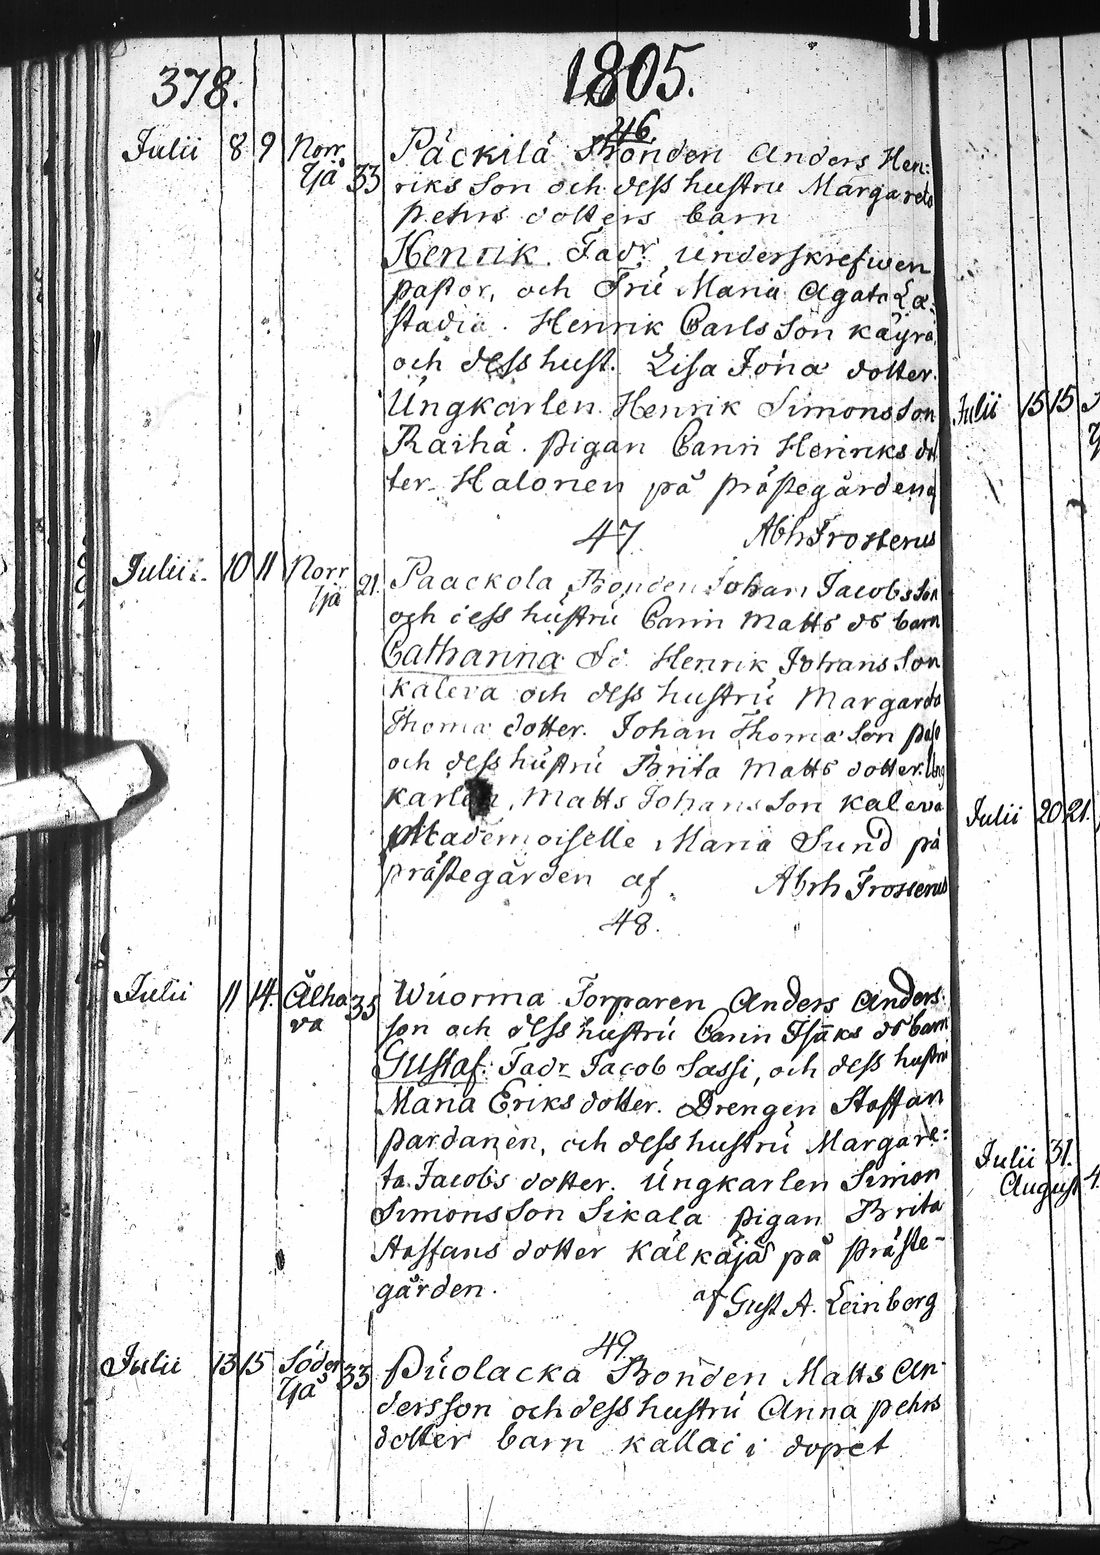 378. 1805.
46.
Julii 8 9 Norr Yjä 33 Päckilä Bonden Anders Hen=
riks Son och dess hustru Margareta
pehrs dotters barn
Henrik. Fadr. underskrefwen
pastor, och Fru Maria Agata Læ=
stadia. Henrik Carls Son Käyrä
och dess hust. Lisa Jona dotter.
Ungkarlen Henrik Simons Son
Raihä. pigan Carin Henriks dot
ter Halonen på prästegården af
47. Abh Frosterus
Julii 10 11 Norr Yjä 21. Paackola Bonden Johan Jacobs Son
och dess hustru Carin Matts ds barn
Catharina Henrik Johans Son
Kaleva och dess hustru Margareta
Thoma dotter. Johan Thoma Son
och dess hustru Brita Matts dotter. Ung
karlen, Matts Johans Son Kaleva
Mademoiselle Maria Sund på
prästegården af Abrh Frosterus
48.
Julii 11 14. Alha va 35 Wuorma Torparen Anders Anders
son och dess hustru Carin Isaks ds barn
Gustaf: Fadr Jacob Sassi, och dess hustru
Maria Eriks dotter. Drengen Staffan
pardanen, och dess hustru Margare=
ta Jacobs dotter. Ungkarlen Simon
Simons Son Sikala pigan Brita
Staffans dotter Kälkäjä på präste-
gården. af Gust A. Leinberg
49.
Julii 13 15 Söder Yjä 33 Puolacka Bonden Matts An
dersson och dess hustru Anna pehrs
dotter barn kallad i dopet
Julii 15 15
Julii 20 21.
Julii 31.
August 4.